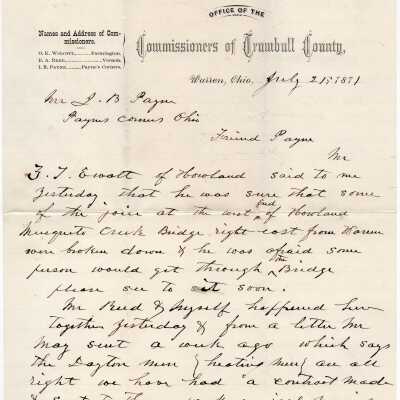 OFFICE OF THE
Names and Address of Com-
missioners.
Commissioners of Trumbull County,
O. K. Wolcott, Farmington.
E. A. Reed, Vernon.
I. B. Payne, Payne's Corners.
Warren, Ohio, July 21st 1881
Mr I B Payne
Paynes corners Ohio
Friend Payne
Mr
F. T. Ewalt of Howland said to me
yesterday that he was sure that some
of the joice at the west end of Howland
Mesquito Creek Bridge right east from Warren
were broken down & he was afraid some
person would get through the Bridge
please see to it soon.
Mr Reed & Myself happened here
together yesterday & from a letter Mr
May sent a week ago which says
the Dayton men (heating men) are all
right we have had a contract made